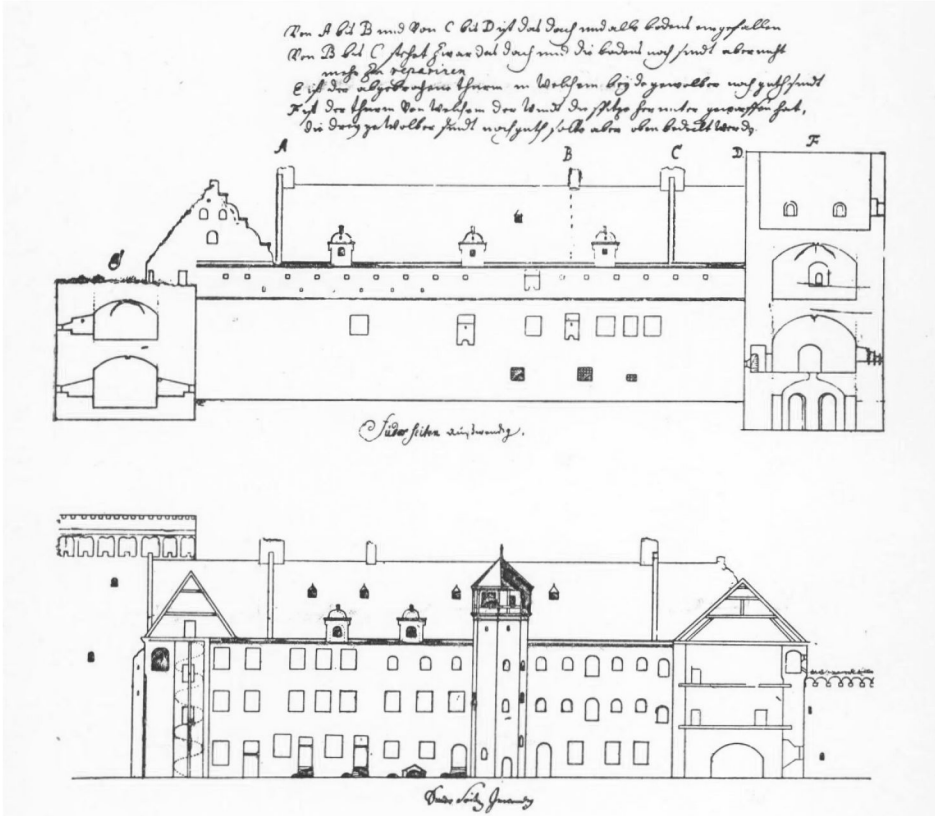 Von A bis B und Von C bis D ist das dach und alle bodens eingefallen
Von B bis C stehet zwar das dach und die bodens noch sindt aber nicht
mehr zu repariren
E ist der abgebrochene thurm in Welchem beyde gewolber noch guth sindt
F ist der thurm Von Welchem der Windt die spitze herunter geworffen hat,
die drey gewolber sindt noch guth solte aber oben bedeckt werden
A B C D F
E
Süder seiten außwendig.
Süder Seiten Inwendig